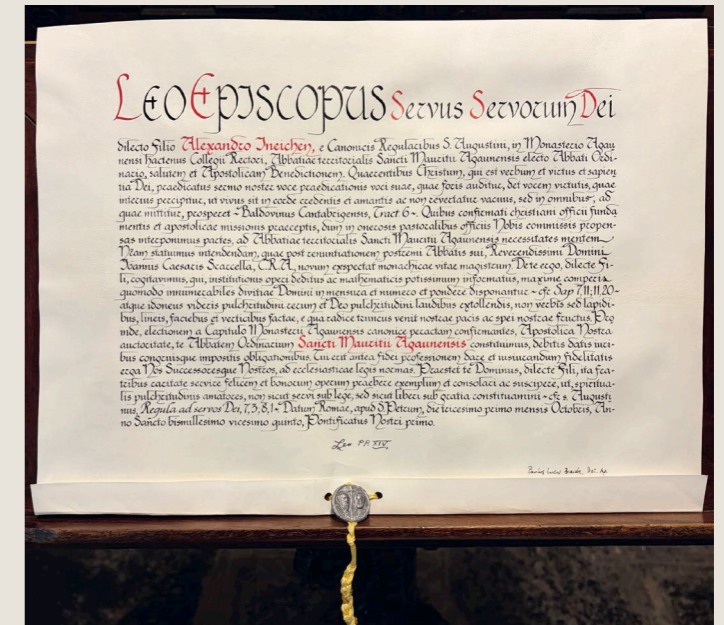 LEO EPISCOPUS Servus Servorum Dei
dilecto Filio Alexandro Ineichen, e Canonicis Regularibus S. Augustini, in Monasterio Agau-
nensi hactenus Collegii Rectori, Abbatiae territorialis Sancti Mauritii Agaunensis electo Abbati Ordi-
nario, salutem et Apostolicam Benedictionem. Quaerentibus Christum, qui est verbum et virtus et sapien-
tia Dei, praedicatus sermo noster voce praedicationis voci suae, quae foris auditur, det vocem virtutis, quae
interius percipitur, ut vivus sit in corde credentis et amantis ac non revertatur vacuus, sed in omnibus, ad
quae mittitur, prosperet - Baldovinus Cantabrigensis, Tract 6 -. Quibus confirmati christiani officii funda-
mentis et apostolicae missionis praeceptis, dum in onerosis pastoralibus officiis Nobis commissis propen-
sas interponimus partes, ad Abbatiae territorialis Sancti Mauritii Agaunensis necessitates mentem
Nram statuimus intendendam, quae post renuntiationem postremi Abbatis sui, Reverendissimi Domini
Ioannis Caesaris Scarcella, C.R.A., novum exspectat monachicae vitae magistrum. De te ergo, dilecte Fi-
li, cogitavimus, qui, institutionis operi deditus ac mathematicis potissimum informatus, maxime comperis
quomodo innumerabiles divitiae Domini in mensura et numero et pondere disponantur - cfr Sap 7,11; 11,20 -
atque idoneus videris pulchritudini rerum et Deo pulchritudini laudibus extollendis, non verbis sed lapidi-
bus, lineis, faciebus et verticibus factae, e qua radice tenus venit nostrae pacis ac spei nostrae fructus. Pro-
inde, electionem a Capitulo Monasterii Agaunensis canonice peractam confirmantes, Apostolica Nostra
auctoritate, te Abbatem Ordinarium Sancti Mauritii Agaunensis constituimus, debitis datis iuri-
bus congruisque impositis obligationibus. Tui erit antea fidei professionem dare et iusiurandum fidelitatis
erga Nos Successoresque Nostros, ad ecclesiasticae legis normas. Praestet te Dominus, dilecte Fili, ita fra-
tribus caritate service felicem et bonorum operum praebere exemplum et consolari ac suscipere, ut, spiritua-
lis pulchritudinis amatores, non sicut servi sub lege, sed sicut liberi sub gratia constituamini - cfr s. Augusti-
nus, Regula ad servos Dei, 7,3; 8,1 -. Datum Romae, apud S. Petrum, die tricesimo primo mensis Octobris, An-
no Sancto bismillesimo vicesimo quinto, Pontificatus Nostri primo.
Leo PP. XIV